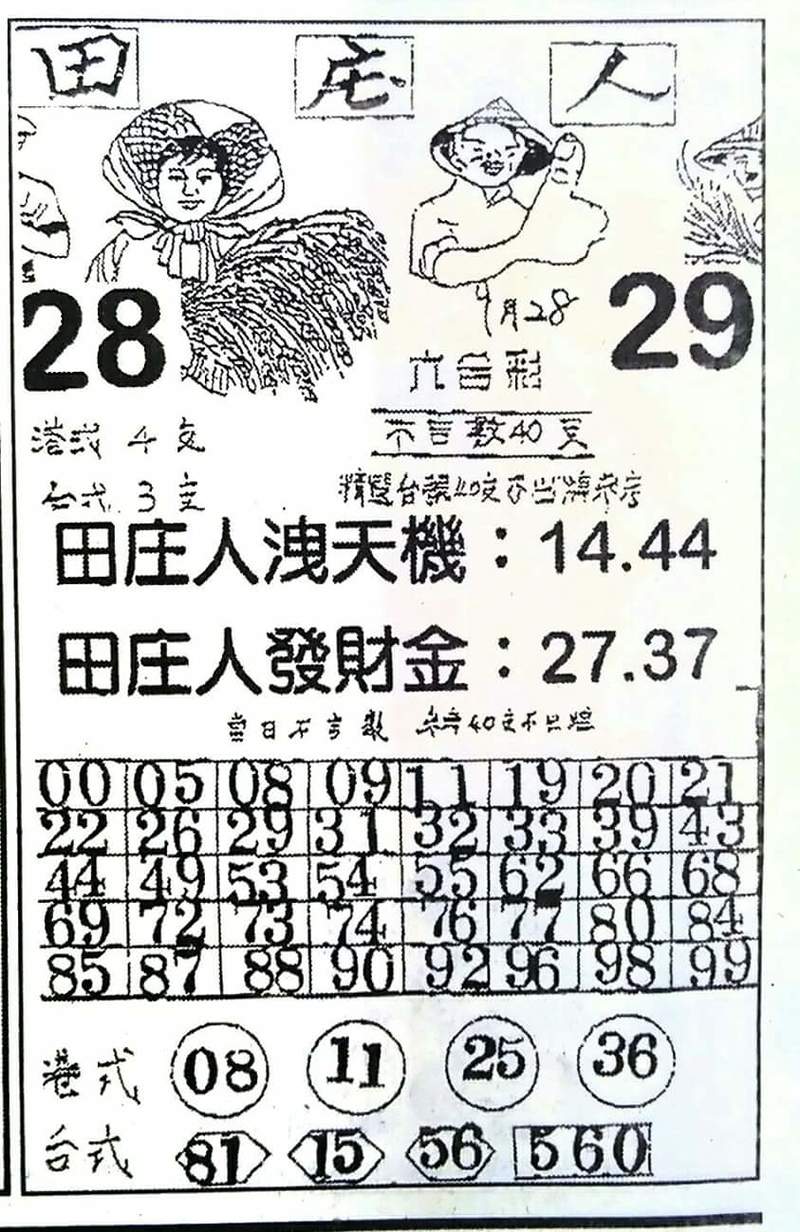 田 庄 人
9月28
28 29
六合彩
港式 4支 不言數40支
台式 3支
田庄人洩天機：14.44
田庄人發財金：27.37
當日不言數
00 05 08 09 11 19 20 21
22 26 29 31 32 33 39 43
44 49 53 54 55 62 66 68
69 72 73 74 76 77 80 84
85 87 88 90 92 96 98 99
港式 08 11 25 36
台式 81 15 56 560